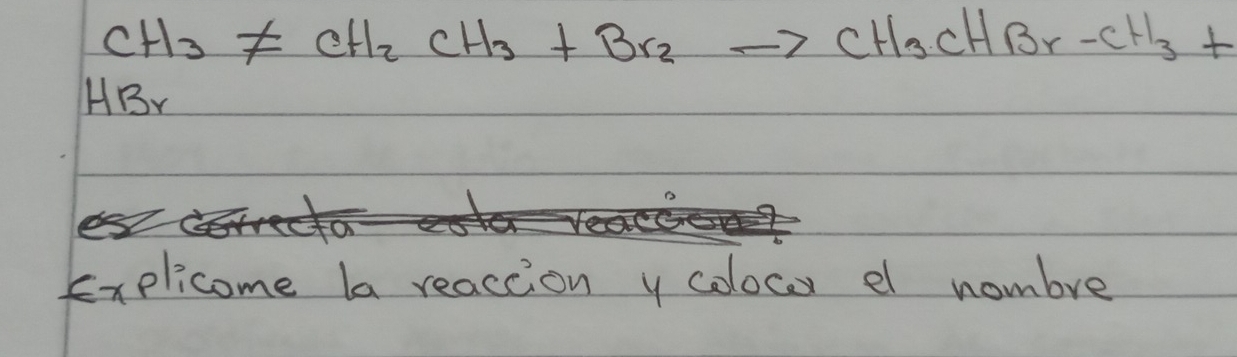 CH3 ≠ CH2 CH3 + Br2 → CH3.CHBr-CH3 +
HBr
es correcta esta reacción?
Explicame la reacción y colocar el nombre